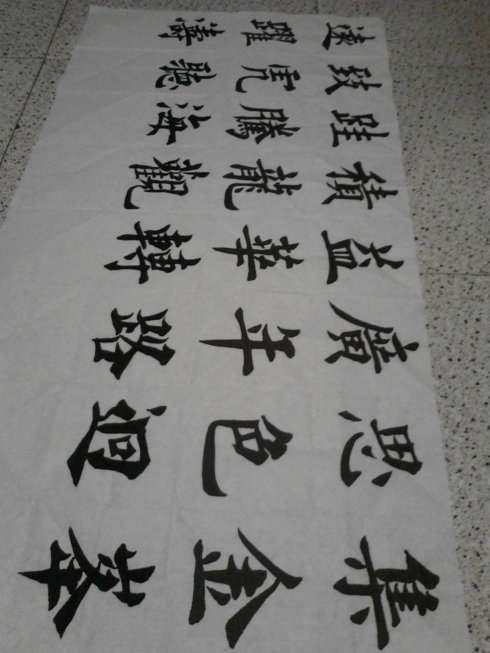 集思廣益積跬致遠
金色年華龍騰虎躍
峯迴路轉觀海聽濤